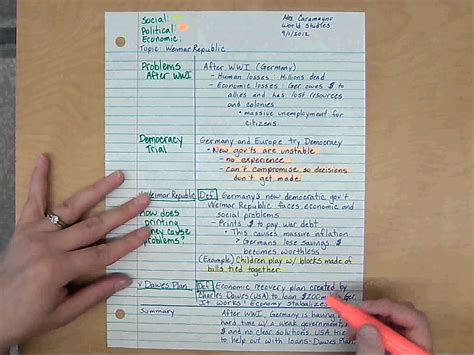 Social:
Political:
Economic:
Topic: Weimar Republic
Mrs. Caramagno
World Studies
9/1/2012
Problems After WWI
After WWI (Germany)
- Human losses: Millions dead
- Economic losses: Ger. owes $ to
allies and has lost resources
and colonies
• massive unemployment for
citizens
Democracy Trial
Germany and Europe try Democracy
• New gov'ts are unstable
- no experience
- can't compromise so decisions
don't get made
Weimar Republic
Def: Germany's new democratic gov't
How does printing money cause problems?
Weimar Republic faces economic and
social problems
- Prints $ to pay war debt
• This causes massive inflation
> Germans lose savings. $
becomes worthless
(Example) Children play w/ blocks made of
bills tied together
v Dawes Plan
Def: Economic recovery plan created by
Charles Dawes (USA) to loan $200m Ger.
It works! Economy stabalizes
Summary
After WWI, Germany is having
hard time w/ a weak government,
$ and no clear solutions. USA
to help out with loans - Dawes Plan.